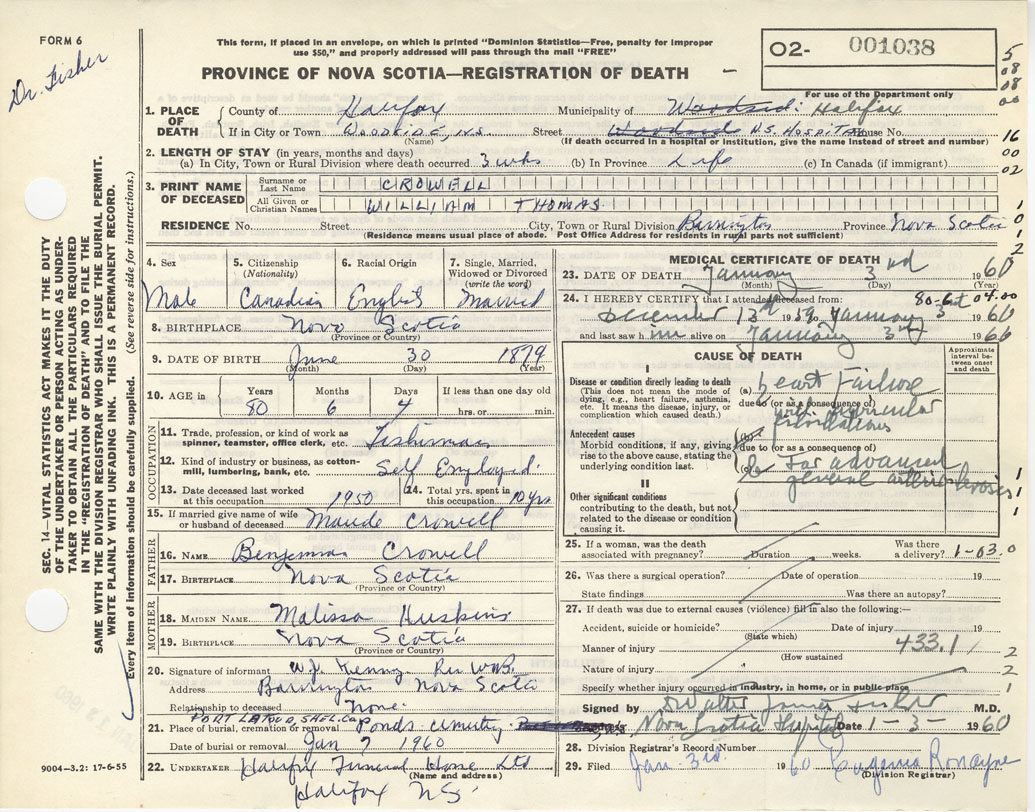 FORM 6
Dr. Fisher
This form, if placed in an envelope, on which is printed "Dominion Statistics—Free, penalty for improper
use $50," and properly addressed will pass through the mail "FREE"
PROVINCE OF NOVA SCOTIA—REGISTRATION OF DEATH
O2- 001038
For use of the Department only
5
08
08
00
16
00
02
1
0
1
2
SEC. 14—VITAL STATISTICS ACT MAKES IT THE DUTY
OF THE UNDERTAKER OR PERSON ACTING AS UNDER-
TAKER TO OBTAIN ALL THE PARTICULARS REQUIRED
IN THE "REGISTRATION OF DEATH" AND TO FILE THE
SAME WITH THE DIVISION REGISTRAR WHO SHALL ISSUE THE BURIAL PERMIT.
WRITE PLAINLY WITH UNFADING INK. THIS IS A PERMANENT RECORD.
Every item of information should be carefully supplied. (See reverse side for instructions.)
1. PLACE OF DEATH County of Halifax Municipality of Woodside: Halifax
If in City or Town WOODSIDE N.S. Street Woodside N.S. HOSPITAL House No.
(Name) (If death occurred in a hospital or institution, give the name instead of street and number)
2. LENGTH OF STAY (in years, months and days)
(a) In City, Town or Rural Division where death occurred 3 wks (b) In Province Life (c) In Canada (if immigrant)
3. PRINT NAME OF DECEASED Surname or Last Name CROWELL
All Given or Christian Names WILLIAM THOMAS
RESIDENCE No. Street City, Town or Rural Division Barrington Province Nova Scotia
(Residence means usual place of abode. Post Office Address for residents in rural parts not sufficient)
4. Sex 5. Citizenship (Nationality) 6. Racial Origin 7. Single, Married, Widowed or Divorced (write the word)
Male Canadian English Married
8. BIRTHPLACE Nova Scotia
(Province or Country)
9. DATE OF BIRTH June 30 1879
(Month) (Day) (Year)
10. AGE in Years Months Days If less than one day old
80 6 4 hrs. or min.
OCCUPATION
11. Trade, profession, or kind of work as spinner, teamster, office clerk, etc. Fisherman
12. Kind of industry or business, as cotton-mill, lumbering, bank, etc. Self Employed.
13. Date deceased last worked at this occupation 1950 14. Total yrs. spent in this occupation yrs.
15. If married give name of wife or husband of deceased Maude Crowell
FATHER
16. NAME Benjamin Crowell
17. BIRTHPLACE Nova Scotia
(Province or Country)
MOTHER
18. MAIDEN NAME Malissa Huskins
19. BIRTHPLACE Nova Scotia
(Province or Country)
20. Signature of informant W.J. Kenny
Address Barrington Nova Scotia
Relationship to deceased None.
PORT LATOUR, SHEL. Co
21. Place of burial, cremation or removal Ponds Cemetery
Date of burial or removal Jan 7 1960
22. UNDERTAKER Halifax Funeral Home Ltd
(Name and address)
Halifax N.S.
9004-3.2: 17-6-55
MEDICAL CERTIFICATE OF DEATH
23. DATE OF DEATH January 3rd 1960
(Month) (Day)
24. I HEREBY CERTIFY that I attended deceased from: 04.00
December 13th 1959 January 3rd 1960
and last saw him alive on January 3rd 1960
CAUSE OF DEATH Approximate interval between onset and death
I
Disease or condition directly leading to death
(This does not mean the mode of dying, e.g., heart failure, asthenia, etc. It means the disease, injury, or complication which caused death.)
(a) heart Failure
due to (or as a consequence of)
with auricular
fibrillations
Antecedent causes
Morbid conditions, if any, giving rise to the above cause, stating the underlying condition last.
(b)
due to (or as a consequence of)
(c) far advanced
general arteriosclerosis
II
Other significant conditions
contributing to the death, but not related to the disease or condition causing it.
1
1
1
25. If a woman, was the death associated with pregnancy? Duration weeks. Was there a delivery? 1-03.0
26. Was there a surgical operation? Date of operation 19
State findings Was there an autopsy?
27. If death was due to external causes (violence) fill in also the following:—
Accident, suicide or homicide? Date of injury 19
(State which)
Manner of injury 433.1 2
(How sustained)
Nature of injury 2
Specify whether injury occurred in industry, in home, or in public place 1
Signed by Walter James Fisher M.D.
Nova Scotia Hospital Date 1-3- 1960
28. Division Registrar's Record Number
29. Filed Jan. 3rd. 1960 Eugenia Ronayne
(Division Registrar)